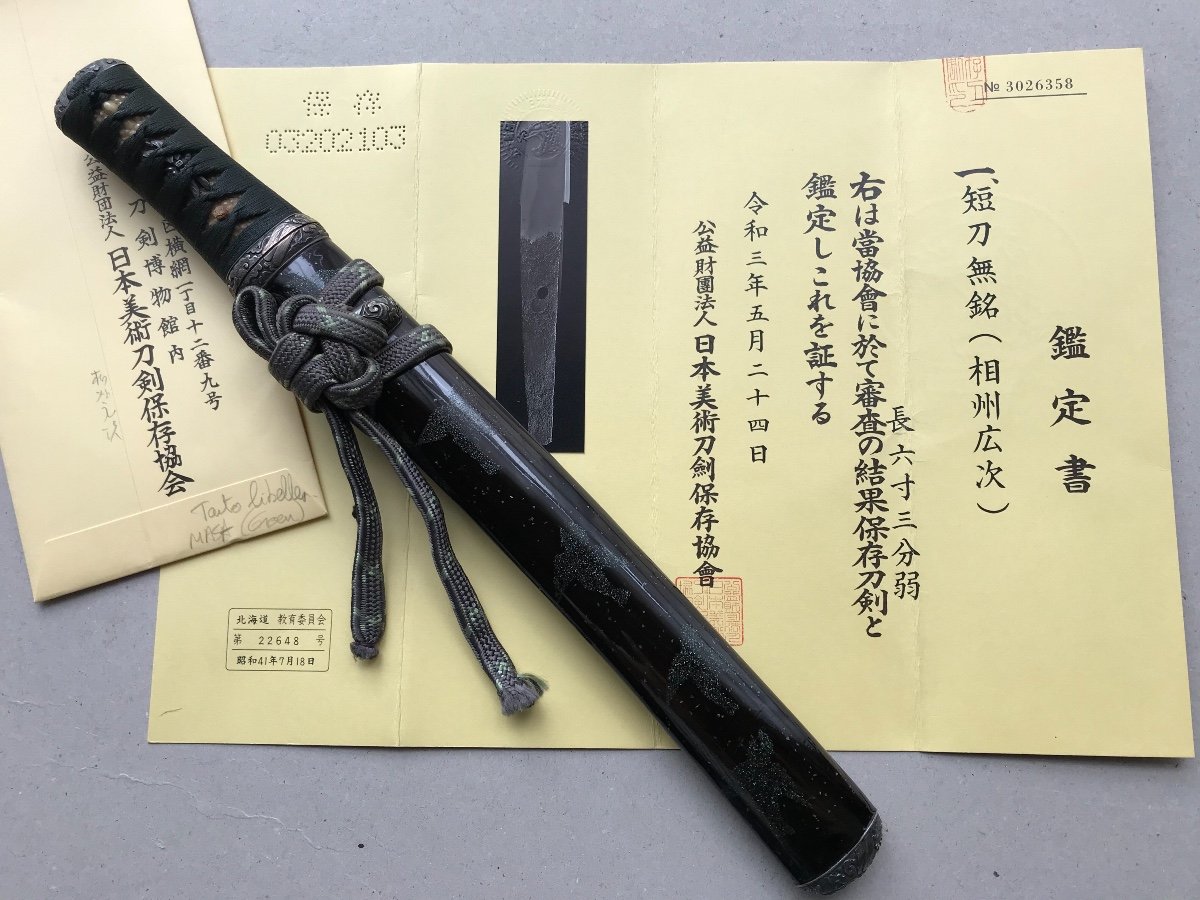 № 3026358
鑑定書
一、短刀無銘(相州広次)
長六寸三分弱
右は當協會に於て審査の結果保存刀剣と
鑑定しこれを証する
令和三年五月二十四日
公益財團法人 日本美術刀劍保存協會
保存
03202103
北海道 教育委員会
第 22648 号
昭和41年7月18日
区横網一丁目十二番九号
刀剣博物館内
公益財団法人 日本美術刀剣保存協会
Tanto libellen